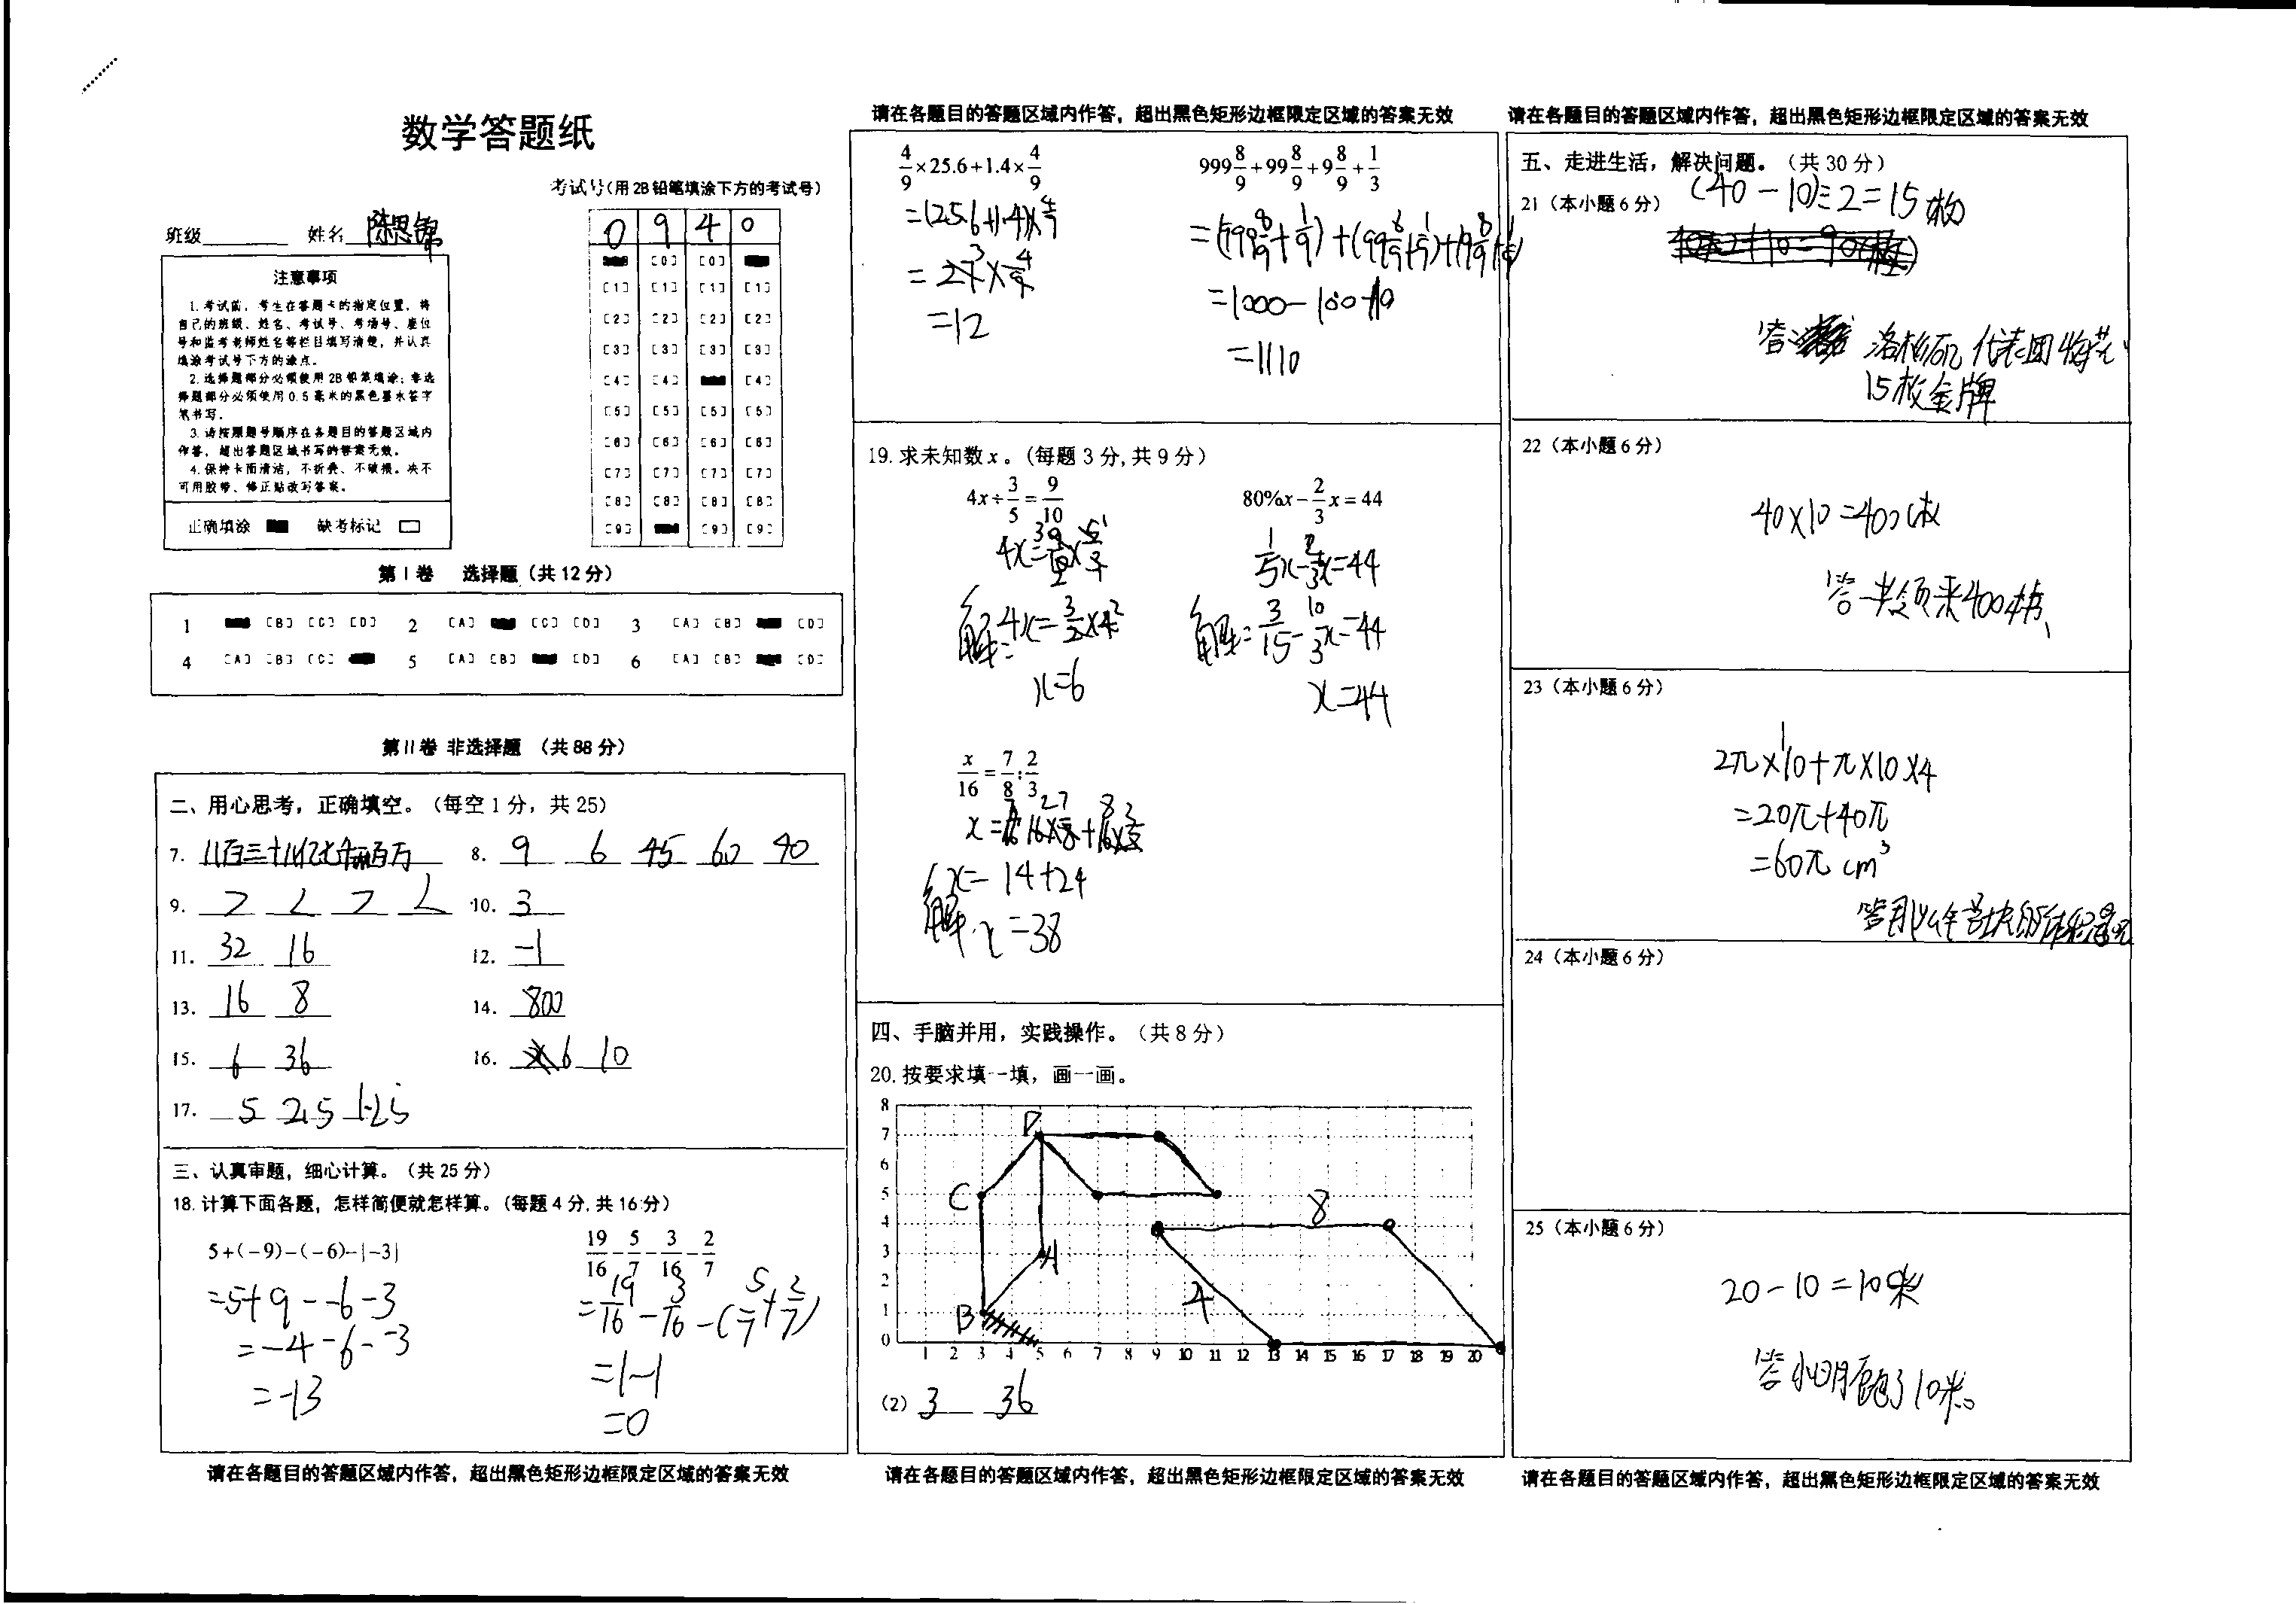 数学答题纸
考试号(用2B铅笔填涂下方的考试号)
班级 姓名 陈思锦
0 9 4 0
[0] [0]
[1] [1] [1] [1]
[2] [2] [2] [2]
[3] [3] [3] [3]
[4] [4] [4]
[5] [5] [5] [5]
[6] [6] [6] [6]
[7] [7] [7] [7]
[8] [8] [8] [8]
[9] [9] [9]
注意事项
1.考试前，考生在答题卡的指定位置，将
自己的班级、姓名、考试号、考场号、座位
号和监考老师姓名等栏目填写清楚，并认真
填涂考试号下方的涂点。
2.选择题部分必须使用2B铅笔填涂；非选
择题部分必须使用0.5毫米的黑色墨水签字
笔书写。
3.请按照题号顺序在各题目的答题区域内
作答，超出答题区域书写的答案无效。
4.保持卡面清洁，不折叠、不破损。决不
可用胶带、修正贴改写答案。
正确填涂 缺考标记
第Ⅰ卷 选择题（共12分）
1 [B] [C] [D] 2 [A] [C] [D] 3 [A] [B] [D]
4 [A] [B] [C] 5 [A] [B] [D] 6 [A] [B] [D]
第Ⅱ卷 非选择题 （共88分）
二、用心思考，正确填空。（每空1分，共25）
7. 八百三十八亿七千 百万 8. 9 6 45 60 40
9. > < > < 10. 3
11. 32 16 12. -1
13. 16 8 14. 800
15. 6 36 16. 6 10
17. 5 2.5 1.25
三、认真审题，细心计算。（共25分）
18.计算下面各题，怎样简便就怎样算。（每题4分,共16分）
5+(-9)-(-6)-|-3|
=5+9--6-3
=-4-6--3
=-13
19/16-5/7-3/16-2/7
=19/16-3/16-(5/7+2/7)
=1-1
=0
请在各题目的答题区域内作答，超出黑色矩形边框限定区域的答案无效
请在各题目的答题区域内作答，超出黑色矩形边框限定区域的答案无效
4/9×25.6+1.4×4/9
=(25.6+1.4)×4/9
=27 3×4/9
=12
999 8/9+99 8/9+9 8/9+1/3
=(999 8/9+1/9)+(99 8/9+1/9)+(9 8/9+1/9)
=1000-100+10
=1110
19.求未知数x。（每题3分,共9分）
4x÷3/5=9/10
4x=9/10×5/3
解:4x=3/2×4
x=6
80%x-2/3x=44
1/5x-2/3x=44
解:=3/15-10/3x=44
x=44
x/16=7/8:2/3
x=16×7/8+16×3/2
x=14+24
解:x=38
四、手脑并用，实践操作。（共8分）
20.按要求填一填，画一画。
8
7
6
5
4
3
2
1
0
D
C
A
B
8
4
1 2 3 4 5 6 7 8 9 10 11 12 13 14 15 16 17 18 19 20
(2) 3 36
请在各题目的答题区域内作答，超出黑色矩形边框限定区域的答案无效
请在各题目的答题区域内作答，超出黑色矩形边框限定区域的答案无效
五、走进生活，解决问题。（共30分）
21（本小题6分） (40-10)÷2=15枚
答 洛杉矶代表团
15枚金牌
22（本小题6分）
40×10=400
答 400
23（本小题6分）
2π×10+π×10×4
=20π+40π
=60π cm³
24（本小题6分）
25（本小题6分）
20-10=10米
答小明 跑了10米。
请在各题目的答题区域内作答，超出黑色矩形边框限定区域的答案无效